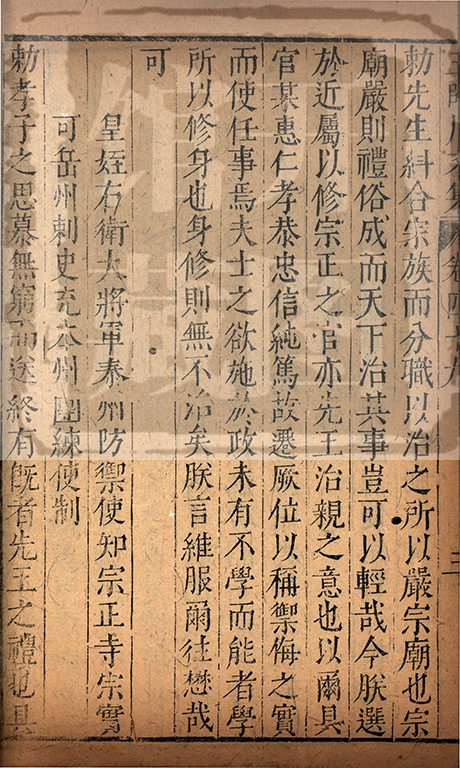 王臨川文集 卷四十九 三
勅先生糾合宗族而分職以治之所以嚴宗廟也宗
廟嚴則禮俗成而天下治其事豈可以輕哉今朕選
於近屬以修宗正之官亦先王治親之意也以爾具
官某惠仁孝恭忠信純篤故遷厥位以稱禦侮之實
而使任事焉夫士之欲施於政未有不學而能者學
所以修身也身修則無不治矣朕言維服爾往懋哉
可
皇姪右衛大將軍泰州防禦使知宗正寺宗實
可岳州刺史充本州團練使制
勅孝子之思慕無窮而送終有旣者先王之禮也具